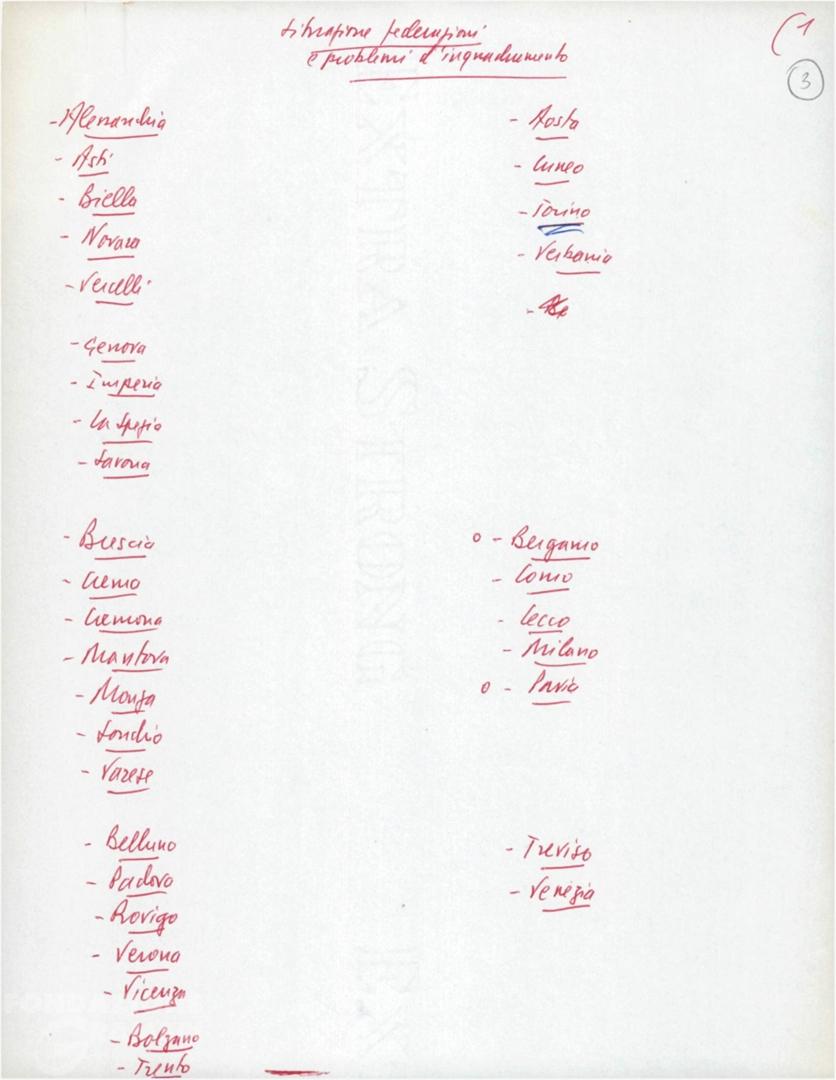 situazione federazioni
e problemi d'inquadramento
(1
3
- Alessandria
- Asti
- Biella
- Novara
- Vercelli
- Genova
- Imperia
- La Spezia
- Savona
- Brescia
- Crema
- Cremona
- Mantova
- Monza
- Sondrio
- Varese
- Belluno
- Padova
- Rovigo
- Verona
- Vicenza
- Bolzano
- Trento
- Aosta
- Cuneo
- Torino
- Verbania
o - Bergamo
- Como
- Lecco
- Milano
o - Pavia
- Treviso
- Venezia
EXTRA STRONG
EX